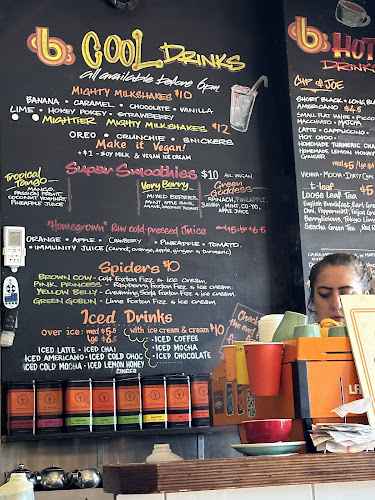 COOL DRINKS
all available before 6pm
MIGHTY MILKSHAKES $10
BANANA • CARAMEL • CHOCOLATE • VANILLA
LIME • HOKEY POKEY • STRAWBERRY
MIGHTIER MIGHTY MILKSHAKES $12
OREO • CRUNCHIE • SNICKERS
Make it Vegan!
+$1 - SOY MILK & VEGAN ICE CREAM
SUPER SMOOTHIES $10 ALL VEGAN!
Tropical Tango
MANGO,
PASSION FRUIT,
COCONUT YOGHURT,
PINEAPPLE JUICE
Very Berry
MIXED BERRIES,
Green Goddess
SPINACH, PINEAPPLE,
BANANA, MINT, CO-YO,
APPLE JUICE
"Homegrown" RAW cold-pressed Juice
ORANGE • APPLE • CRANBERRY • PINEAPPLE • TOMATO
IMMUNITY JUICE (carrot, apple, orange, ginger & turmeric)
Spiders $10
BROWN COW - Cola Foxton Fizz & ice cream
PINK PRINCESS - Raspberry Foxton Fizz & ice cream
YELLOW BELLY - Creaming Soda Foxton Fizz & ice cream
GREEN GOBLIN - Lime Foxton Fizz & ice cream
Iced Drinks
Over ice: med $5.5
Lge $6.5
ICED LATTE • ICED CHAI
ICED AMERICANO • ICED COLD CHOC
ICED COLD MOCHA • ICED LEMON HONEY
GINGER
with ice cream & cream $10
ICED COFFEE
ICED MOCHA
ICED CHOCOLATE
HOT
DRINKS
CUP of JOE
SHORT BLACK • LONG
AMERICANO $4.5
SMALL FLAT WHITE • PICCO
MACCHIATO •
LATTE • CAPPUCCINO •
HOT CHOC •
HOMEMADE TURMERIC CHAI
HOMEMADE LEMON HONEY
GINGER
VIENNA • MOCHA • DIRTY
t-leaf
Loose Leaf Tea
English Breakfast, Earl Grey
Chai, Peppermint,